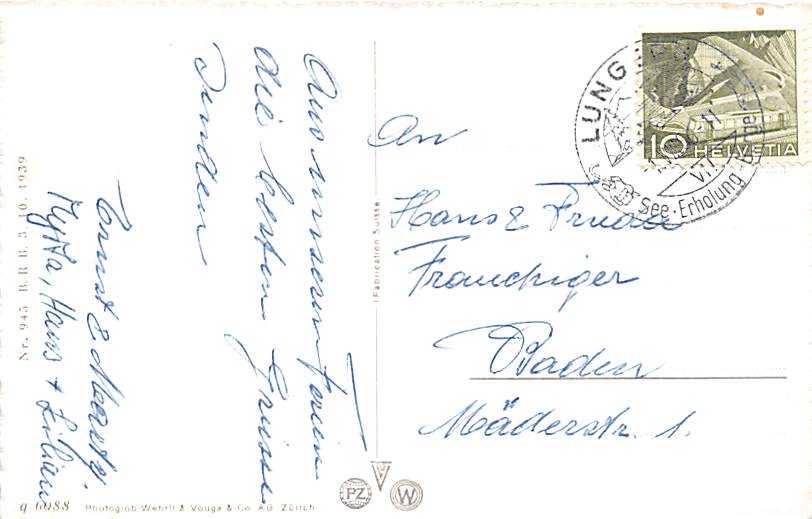 Aus unseren Ferien
die besten Grüsse
senden
Ernst &
Mytta, Hans + Lilian
An
Hans & Frieda
Frauchiger
Baden
Mäderstr. 1.
LUNGERN
See-Erholung-Berge
HELVETIA
10
Fabrication Suisse
Nr. 945 B. R. B. 3. 10. 1939
q 6088 Photoglob-Wehrli & Vouga & Co. A.G. Zürich
PZ
W